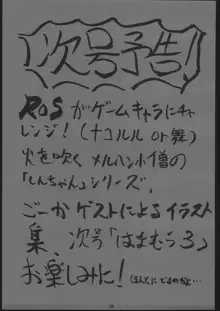 次号予告!
RoSがゲームキャラにチャ
レンジ!(ナコルル or 舞)
火を吹くメルヘン小僧の
「しんちゃん」シリーズ、
ごーかゲストによるイラスト
集、次号「はまむら3」
お楽しみに!